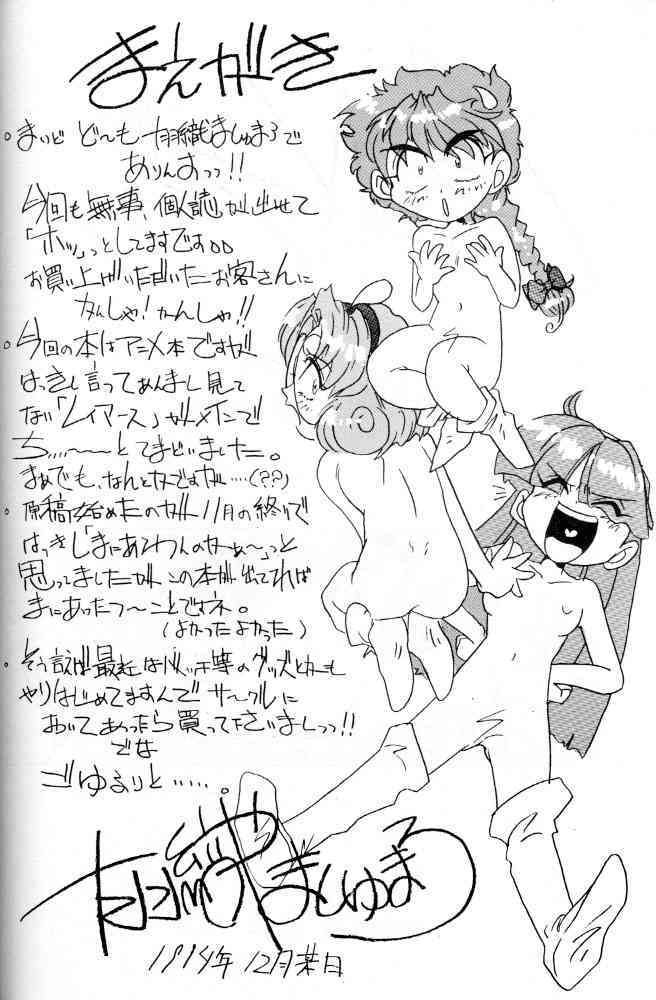 まえがき
。まいど ど〜も 羽織ましゅまろで
ありんすっっ!!
今回も無事、個人誌が出せて
「ホッ」っとしてますですのの
お買い上げいただいたお客さんに
かんしゃ!かんしゃ!!
。今回の本はアニメ本ですが
はっきし言ってあんまし見て
ない「レイアース」がメインで
ち……〜〜とてまどいました。
まぁでも、なんとかですが……(??)
。原稿始めたのが 11月の終りで
はっきし「まにあわんのかぁ〜」っと
思ってましたが この本が出てれば
まにあったつ〜ことですネ。
(よかったよかった)
。そう言えば最近はバッチ等のグッズとかも
やりはじめてますんで サークルに
おいてあったら買って下さいましっっ!!
でな
ごゆるりと……。
羽織ましゅまろ
1994年 12月某日